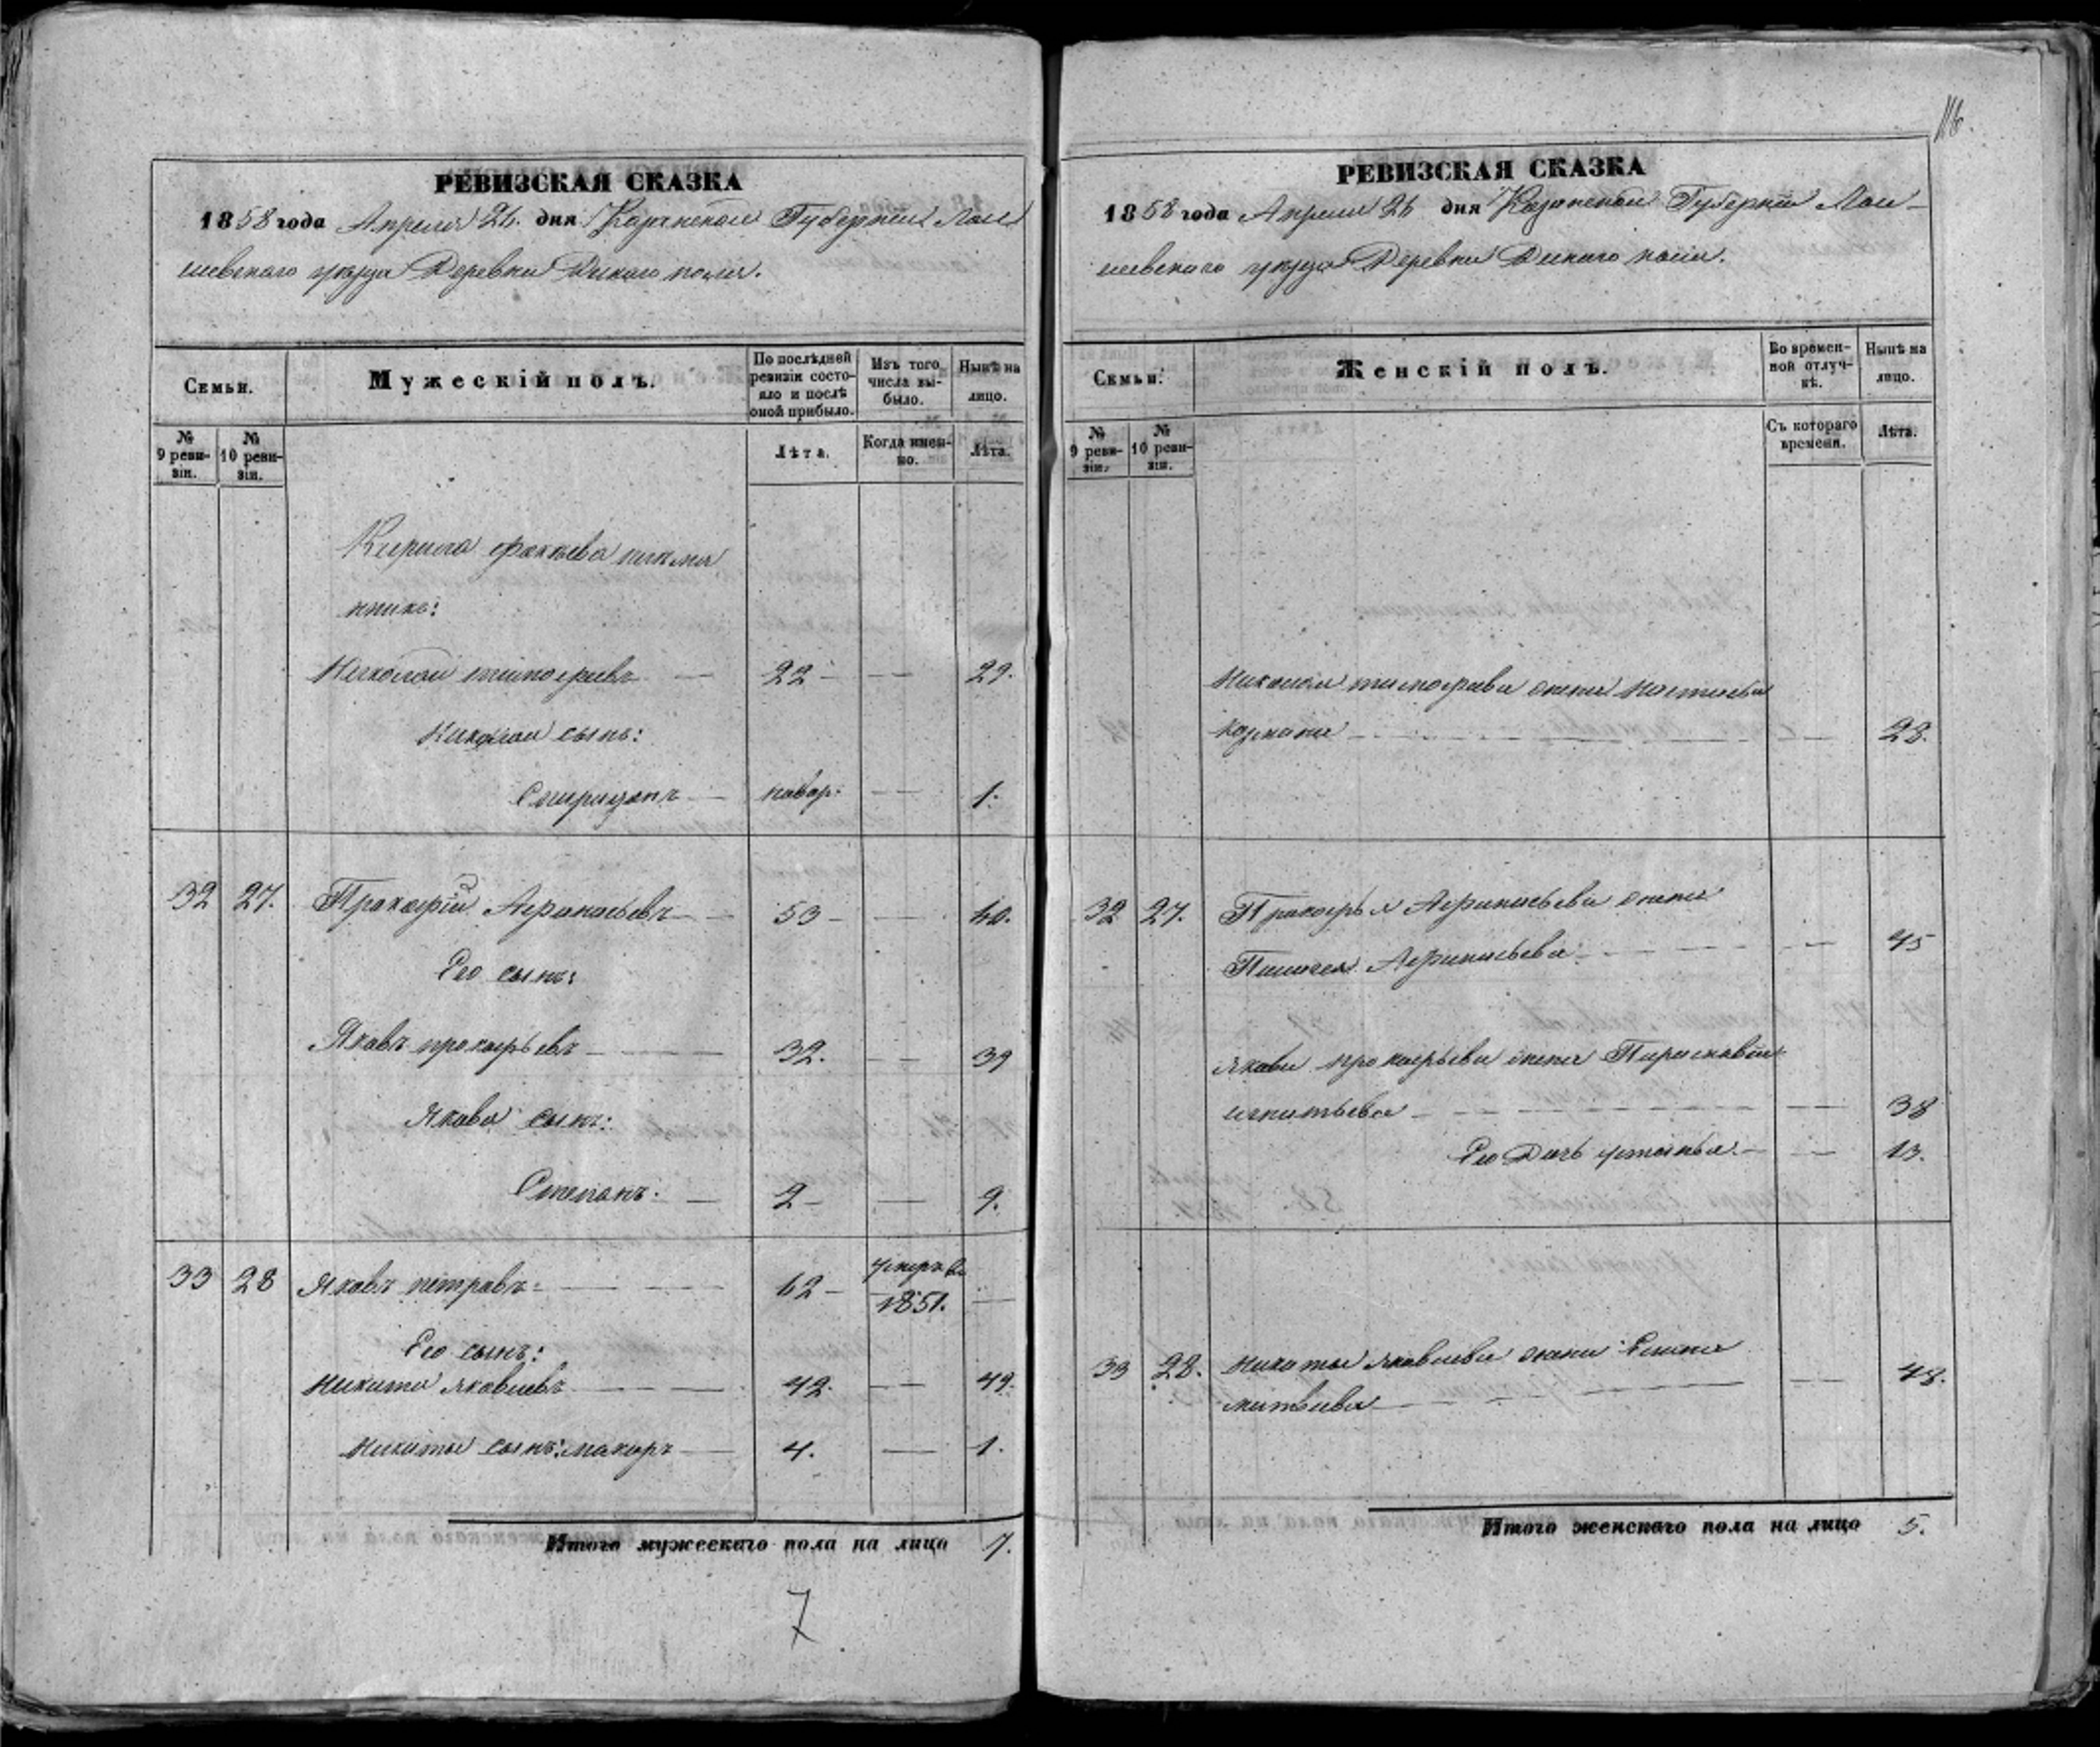 116.
РЕВИЗСКАЯ СКАЗКА
1858 года Апреля 26. дня Казанской Губернии Лаи
шевского уезда Деревни Дикаго поля.
Семьи.
Мужескій полъ.
По послѣдней ревизіи состояло и послѣ оной прибыло.
Изъ того числа выбыло.
Нынѣ на лицо.
№ 9 ревизіи.
№ 10 ревизіи.
Лѣта.
Когда именно.
Лѣта.
Кирила племя
нникъ:
Николай тимофѣевъ — 22 — — 29.
Николая сынъ:
Спиридонъ — новор: — 1.
32 27. Прокофій Афонасьевъ — 53 — — 60.
Его сынъ:
Яковъ прокофьевъ — 32. — 39
Якова сынъ:
Степанъ. — 2 — — 9.
33 28 Яковъ петровъ — 62 — умеръ въ 1851. —
Его сынъ:
Никита яковлевъ — 42. — 49.
Никиты сынъ: макаръ — 4. — 1.
Итого мужескаго пола на лицо 7.
7
РЕВИЗСКАЯ СКАЗКА
1858 года Апреля 26 дня Казанской Губерніи Лаи-
шевского уезда Деревни Дикаго поля.
Семьи.
Женскій полъ.
Во временной отлучкѣ.
Нынѣ на лицо.
№ 9 ревизіи.
№ 10 ревизіи.
Съ котораго времени.
Лѣта.
Николая тимофеева жена Настасья
— — 28.
32 27. Прокофья Афанасьева жена
Афанасьева — — 45
Якова прокофьева жена Парасковья
игнатьева — — 38
Его Дочь устинья — — 13.
33 28. Никиты яковлева жена Елена
матвеева — — 48.
Итого женскаго пола на лицо 5.